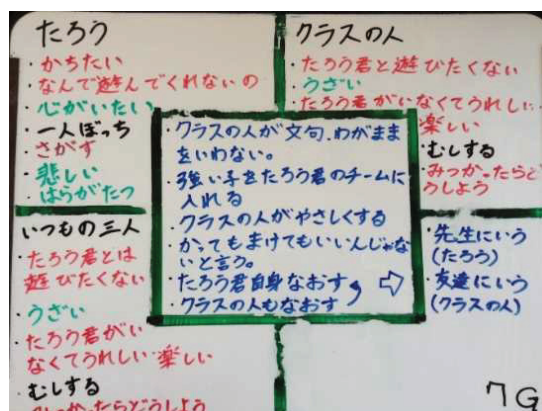 たろう
・かちたい
・なんで遊んでくれないの
・心がいたい
・一人ぼっち
・さがす
・悲しい
・はらがたつ
クラスの人
・たろう君と遊びたくない
うざい
・たろう君がいなくてうれしい
楽しい
・むしする
・みつかったらど
うしよう
・クラスの人が文句、わがまま
をいわない。
・強い子をたろう君のチームに
入れる
・クラスの人がやさしくする
・かってもまけてもいいんじゃな
いと言う。
・たろう君自身なおす
・クラスの人もなおす
⇨
・先生にいう
(たろう)
・友達にいう
(クラスの人)
いつもの三人
・たろう君とは
遊びたくない
・うざい
・たろう君がい
なくてうれしい・楽しい
・むしする
みつかったらどうしよう
7G